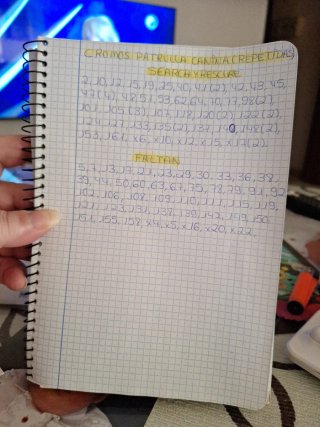 CROMOS PATRULLA CANINA (REPETIDAS)
SEARCH Y RESCUE
2, 10, 12, 15, 19, 25, 40, 41(2), 42, 43, 45,
47(4), 48, 51, 53, 62, 64, 70, 77, 98(2),
101, 105(3), 107, 118, 120(2), 122(2),
124, 127, 133, 135(2), 137, 140, 148(2),
153, 161, x6, x10, x12, x15, x17(2).
FALTAN
5, 7, 13, 17, 21, 23, 29, 30, 33, 36, 38,
39, 44, 50, 60, 63, 67, 75, 78, 79, 91, 92
102, 106, 108, 109, 110, 111, 115, 119,
121, 123, 131, 138, 139, 142, 149, 150
151, 155, 158, x4, x5, x16, x20, x22.